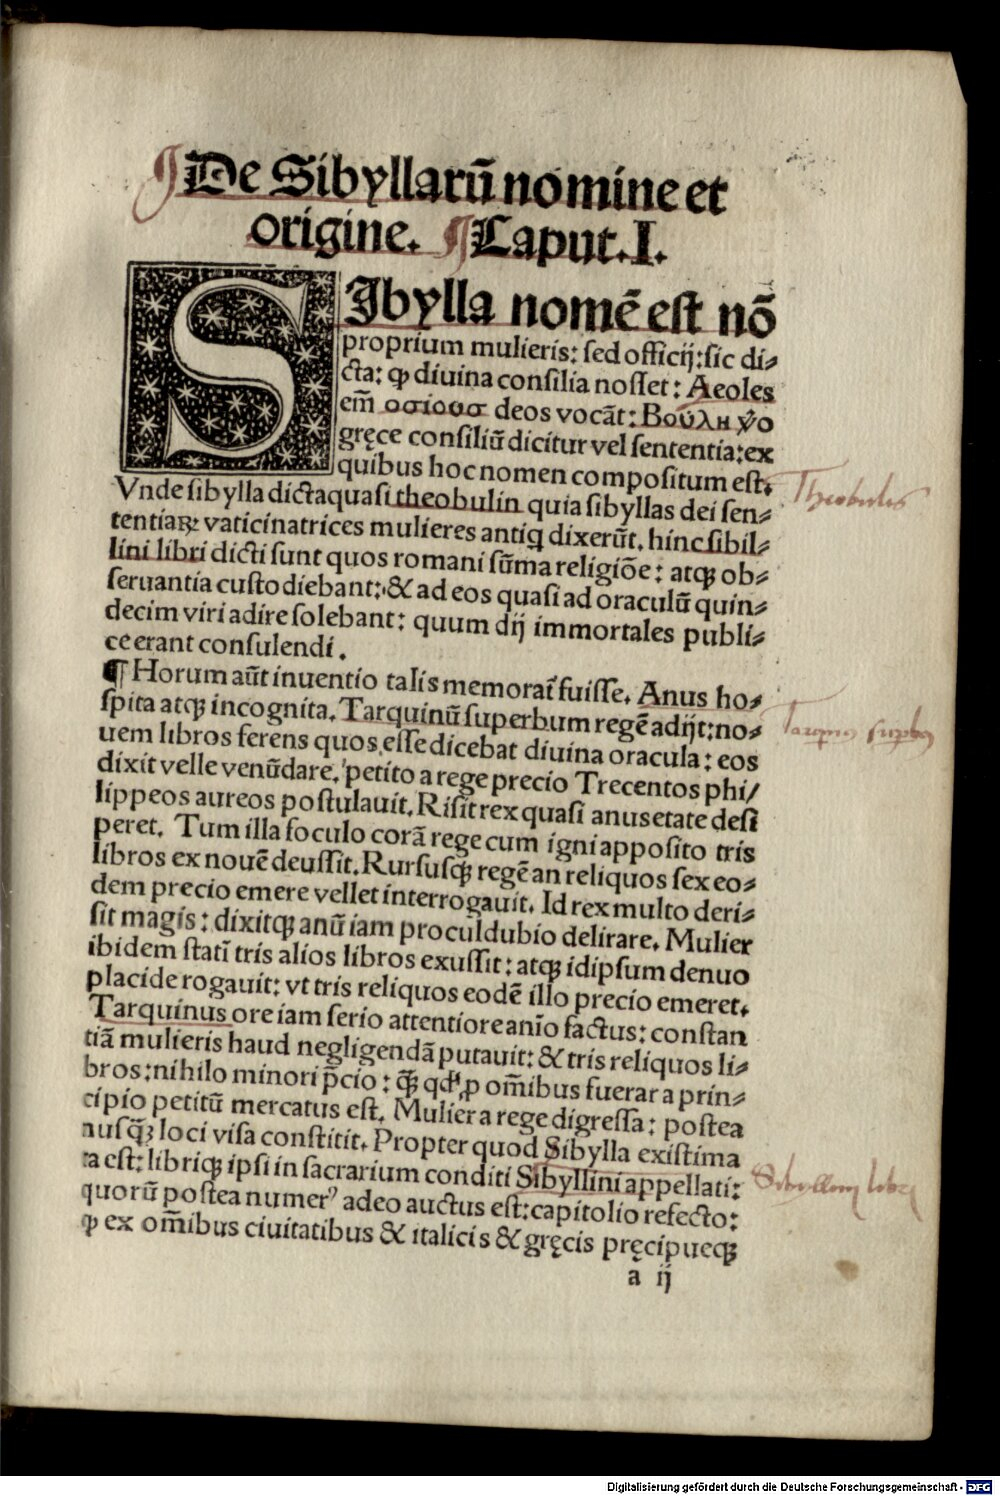 ¶De Sibyllarū nomine et
origine. ¶Caput.I.
SIbylla nomē est nō
proprium mulieris: sed officij: sic di-
cta: ꝙ diuina consilia nosset: Aeoles
em̄ οσιουσ deos vocāt: Βούλη v̊o
gręce consiliū dicitur vel sententia: ex
quibus hoc nomen compositum est.
Vnde sibylla dicta quasi theobulin quia sibyllas dei sen-
tentiaꝝ vaticinatrices mulieres antiq dixerūt. hinc sibil-
lini libri dicti sunt quos romani sūma religiōe: atqꝫ ob-
seruantia custodiebant: & ad eos quasi ad oraculū quin-
decim viri adire solebant: quum dij immortales publi-
ce erant consulendi.
¶ Horum aūt inuentio talis memorat̄ fuisse. Anus ho-
spita atqꝫ incognita. Tarquinū superbum regē adijt: no-
uem libros ferens quos esse dicebat diuina oracula: eos
dixit velle venūdare. petito a rege precio Trecentos phi/
lippeos aureos postulauit. Risit rex quasi anus etate desi
peret. Tum illa foculo corā rege cum igni apposito tris
libros ex nouē deussit. Rursusqꝫ regē an reliquos sex eo-
dem precio emere vellet interrogauit. Id rex multo deri-
sit magis: dixitqꝫ anū iam procul dubio delirare. Mulier
ibidem statī tris alios libros exussit: atqꝫ id ipsum denuo
placide rogauit: vt tris reliquos eodē illo precio emeret.
Tarquinus ore iam serio attentiore anīo factus: constan
tiā mulieris haud negligendā putauit: & tris reliquos li-
bros: nihilo minori p̄cio: qꝫ̄ qd̛ ꝓ om̄ibus fuerar a prin-
cipio petitū mercatus est. Mulier a rege digressa: postea
nusqꝫ̄ loci visa constitit. Propter quod Sibylla existima
ta est: libriqꝫ ipsi in sacrarium conditi Sibyllini appellati:
quorū postea numerꝰ adeo auctus est: capitolio refecto:
ꝙ ex om̄ibus ciuitatibus & italicis & gręcis pręcipueqꝫ
a ij
Theobules
Sibyllini libri
Digitalisierung gefördert durch die Deutsche Forschungsgemeinschaft - DFG